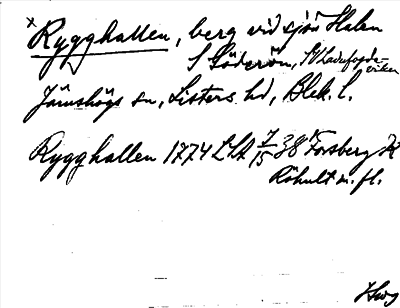 x Rygghallen, berg vid sjön Halen
S Söderön, SV Ladufogda-
viken
Jämshögs sn, Listers hd, Blek. l.
Rygghallen 1774 LSA 7/15 38 Forsberg K
Röhult m. fl.